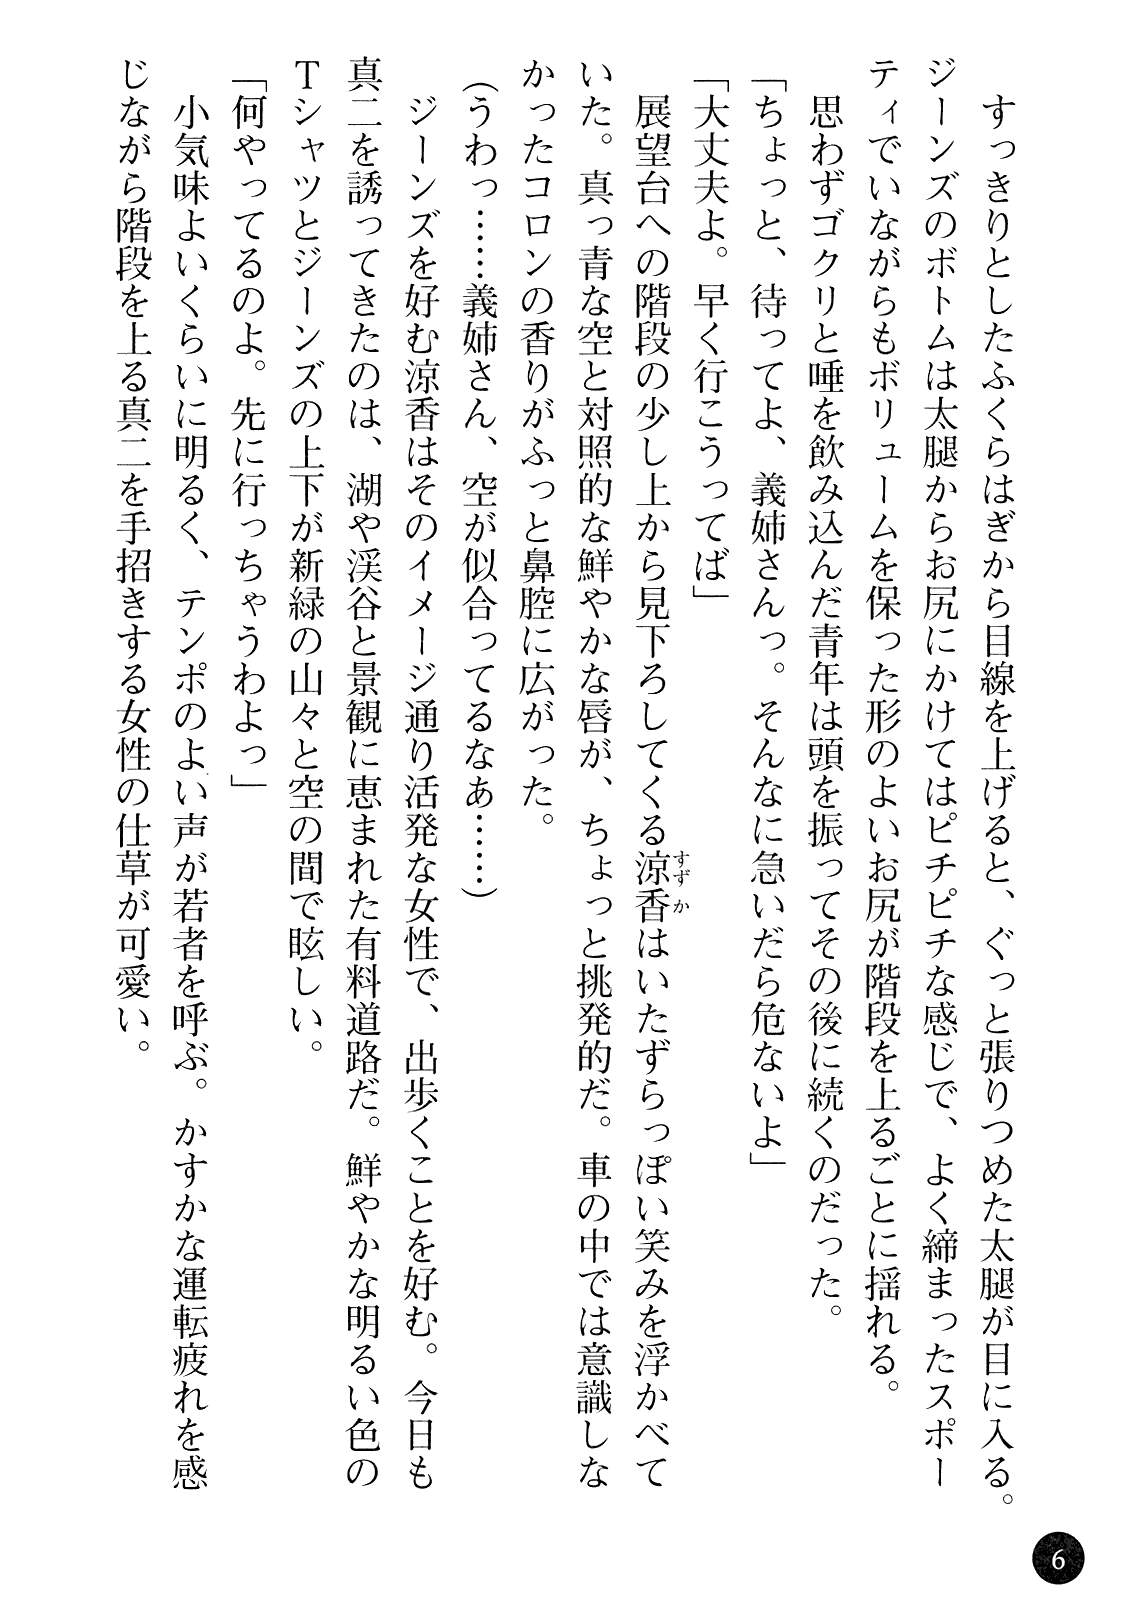 すっきりとしたふくらはぎから目線を上げると、ぐっと張りつめた太腿が目に入る。
ジーンズのボトムは太腿からお尻にかけてはピチピチな感じで、よく締まったスポー
ティでいながらもボリュームを保った形のよいお尻が階段を上るごとに揺れる。
思わずゴクリと唾を飲み込んだ青年は頭を振ってその後に続くのだった。
「ちょっと、待ってよ、義姉さんっ。そんなに急いだら危ないよ」
「大丈夫よ。早く行こうってば」
展望台への階段の少し上から見下ろしてくる涼香はいたずらっぽい笑みを浮かべて
すずか
いた。真っ青な空と対照的な鮮やかな唇が、ちょっと挑発的だ。車の中では意識しな
かったコロンの香りがふっと鼻腔に広がった。
(うわっ……義姉さん、空が似合ってるなぁ……)
ジーンズを好む涼香はそのイメージ通り活発な女性で、出歩くことを好む。今日も
真二を誘ってきたのは、湖や渓谷と景観に恵まれた有料道路だ。鮮やかな明るい色の
Tシャツとジーンズの上下が新緑の山々と空の間で眩しい。
「何やってるのよ。先に行っちゃうわよっ」
小気味よいくらいに明るく、テンポのよい声が若者を呼ぶ。かすかな運転疲れを感
じながら階段を上る真二を手招きする女性の仕草が可愛い。
6